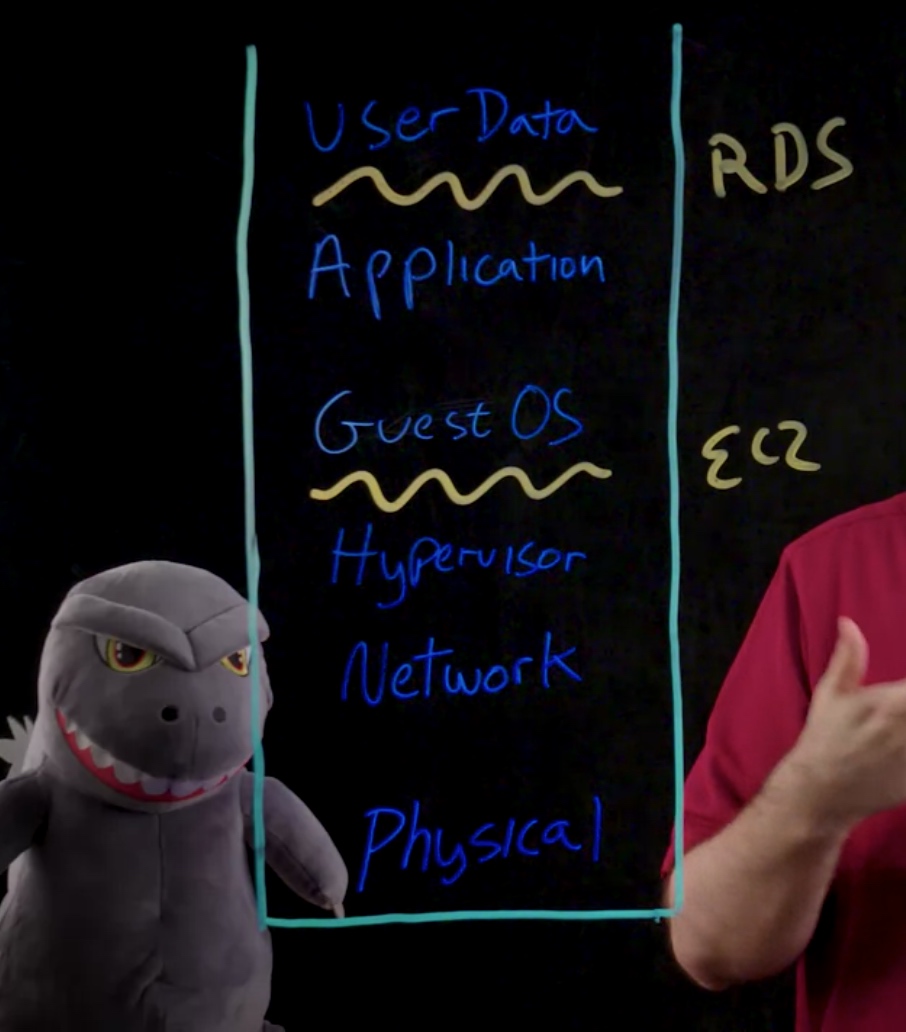 User Data
RDS
Application
Guest OS
EC2
Hypervisor
Network
Physical